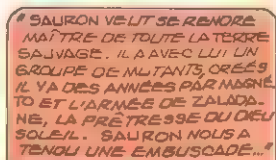 " SAURON VEUT SE RENDRE
MAÎTRE DE TOUTE LA TERRE
SAUVAGE. IL A AVEC LUI UN
GROUPE DE MUTANTS, CRÉÉS
IL Y A DES ANNÉES PAR MAGNÉ
TO ET L'ARMÉE DE ZALADA-
NE, LA PRÊTRESSE DU DIEU
SOLEIL. SAURON NOUS A
TENDU UNE EMBUSCADE...